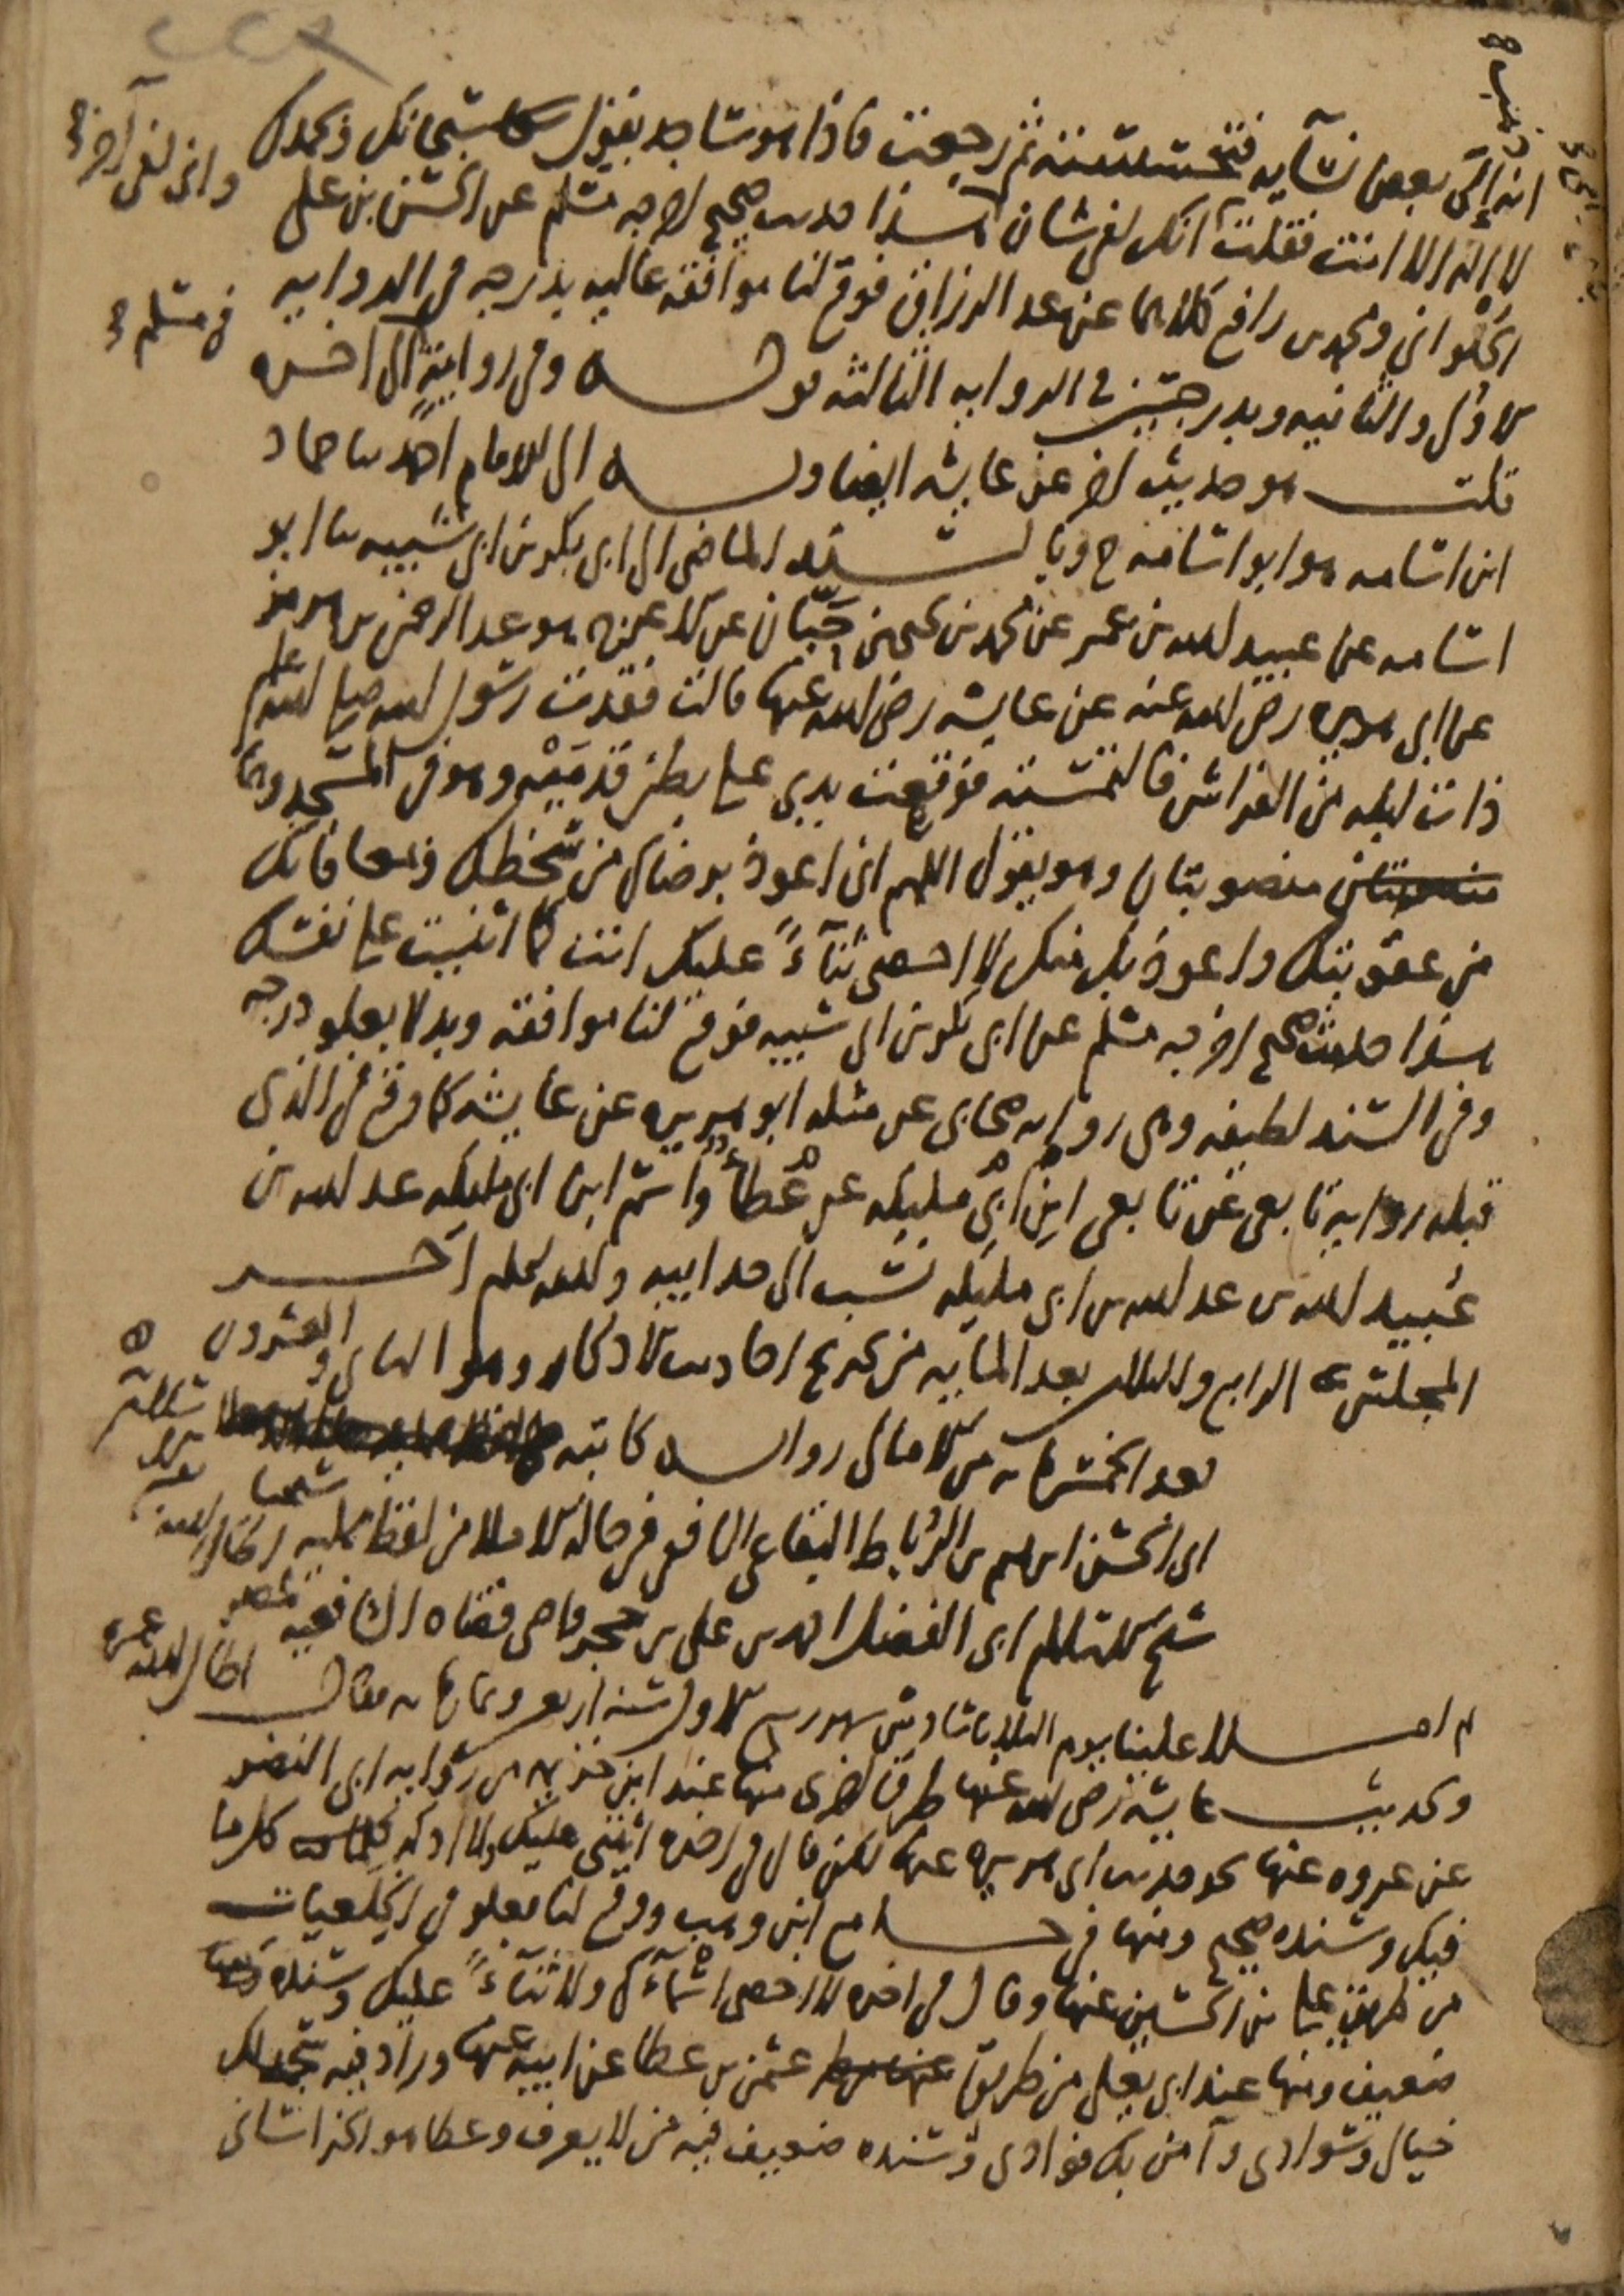 ذهب صح
انه إلى بعض نسآيه فتحسسته ثم رجعت فاذا هو ساجد يقول سبحانك وبحمدك
لا اله الا انت فقلت انك لفى شان هذا حديث صحيح اخرجه مسلم عن الحسن بن على
وانى لفى آخر صح
الحلوانى ومحمد بن رافع كلاهما عن عبد الرزاق فوقع لنا موافقة عاليه بدرجه فى الروايه
الاولى والثانيه وبدرجتين فى الرواية الثالثه قوله وفى رواية الى اخره
فى مسلم صح
قلت هو حديث اخر عن عايشه ايضا وبه الى الامام احمد ثنا حماد
ابن اسامه هو ابو اسامة ح وبالسند الماضى الى ابى بكر بن ابى شيبه ثنا ابو
اسامه عن عبيد الله بن عمر عن محمد بن يحيى بن حبّان عن الاعرج هو عبد الرحمن بن هرمز
عن ابى هريره رضى الله عنه عن عايشه رضى الله عنها قالت فقدت رسول الله صلى الله عليه وسلم
ذات ليله من الفراش فالتمسته فوقعت يدى على بطن قدميْه وهو فى المسجد وهما
منصوبتان وهو يقول اللهم انى اعوذ برضاك من سخطك وبمعافاتك
من عقوبتك واعوذ بك منك لا احصى ثنآءً عليك انت كما اثنيت على نفسك
هذا حديث صحيح اخرجه مسلم عن ابى بكر بن ابى شيبه فوقع لنا موافقة وبدلا بعلو درجه
وفى السند لطيفه وهى روايه صحابى عن مثله ابو هريره عن عايشه كما وقع فى الذى
قبله روايه تابعى عن تابعى ابن ابى مليكه عن عطا واسم ابن ابى مليكه عبد الله بن
عُبيد الله بن عبد الله بن ابى مليكه نسب الى جد ابيه والله اعلم آخر
المجلس الرابع والثلاثين بعد المايه من تخريج احاديث الاذكار وهو الثانى والعشرون
بعد الخمسمايه من الامالى رواية كاتبه
ابى الحسن ابراهيم بن الرُباط البقاعى الشافعى فى حالة الاملا من لفظ ممليه شيخنا
شيخ الاسلام ابى الفضل احمد بن على بن حجر قاضى قضاه الشافعيه بمصر اطال الله عمره
ثم املا علينا يوم الثلاثا سادس شهر ربيع الاول سنة اربع وثمانمايه فقال
ولحديث عايشه رضى الله عنها طرق اخرى منها عند ابن خزيمه من رواية ابى النضر
عن عروه عنها نحو حديث ابى هريره عنها لكن قال فى اخره اثنى عليك لا ادرك كلما
فيك وسنده صحيح ومنها فى جامع ابن وهب ووقع لنا بعلو فى الخلعيات
من طريق على بن الحسين عنها وقال فى اخره لا احصى اسمآءك ولا ثنآءً عليك وسنده
ضعيف ومنها عند ابى يعلى من طريق عثمن بن عطا عن ابيه عنها وزاد فيه سجد لك
خيالى وسوادى وآمن بك فوادى وسنده ضعيف فيه من لا يعرف وعطا هو الخراسانى